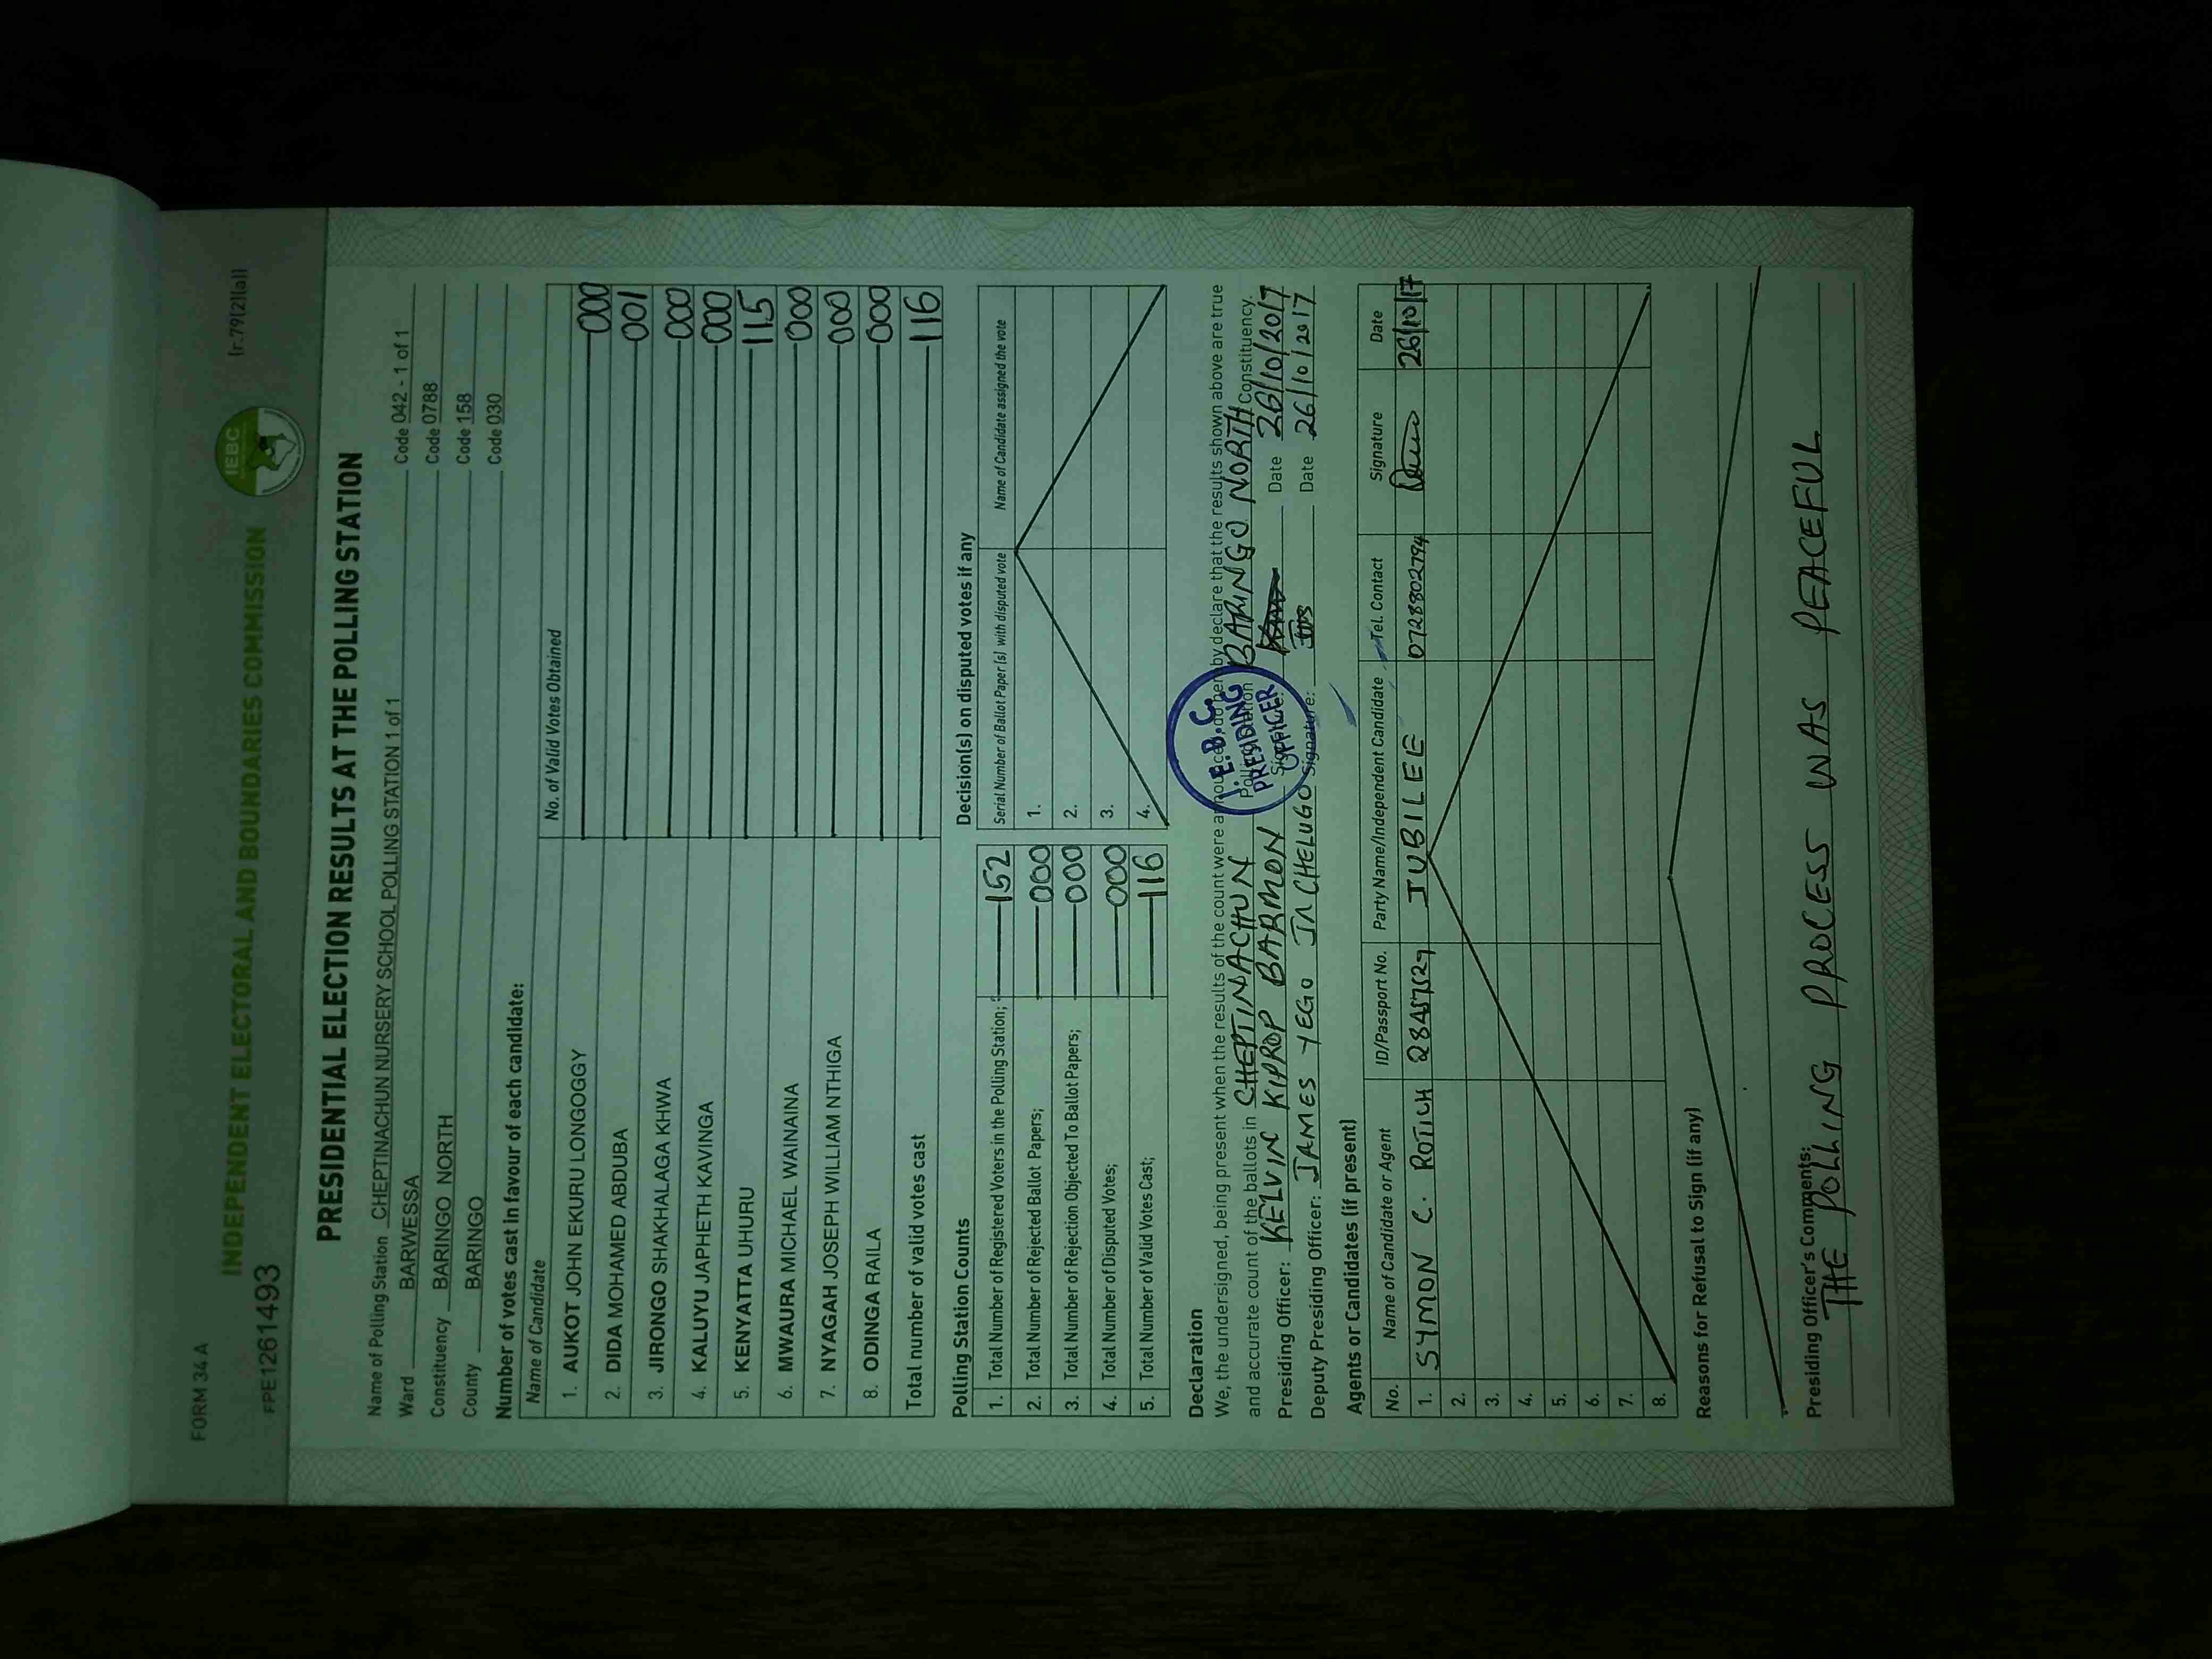 FORM 34 A
(r.79(2)(a))
FPE1261493
INDEPENDENT ELECTORAL AND BOUNDARIES COMMISSION
IEBC
PRESIDENTIAL ELECTION RESULTS AT THE POLLING STATION
Name of Polling Station CHEPTINACHUN NURSERY SCHOOL POLLING STATION 1 of 1 Code 042 - 1 of 1
Ward BARWESSA Code 0788
Constituency BARINGO NORTH Code 158
County BARINGO Code 030
Number of votes cast in favour of each candidate:
Name of Candidate No. of Valid Votes Obtained
1. AUKOT JOHN EKURU LONGOGGY 000
2. DIDA MOHAMED ABDUBA 001
3. JIRONGO SHAKHALAGA KHWA 000
4. KALUYU JAPHETH KAVINGA 000
5. KENYATTA UHURU 115
6. MWAURA MICHAEL WAINAINA 000
7. NYAGAH JOSEPH WILLIAM NTHIGA 000
8. ODINGA RAILA 000
Total number of valid votes cast 116
Polling Station Counts
1. Total Number of Registered Voters in the Polling Station; 152
2. Total Number of Rejected Ballot Papers; 000
3. Total Number of Rejection Objected To Ballot Papers; 000
4. Total Number of Disputed Votes; 000
5. Total Number of Valid Votes Cast; 116
Decision(s) on disputed votes if any
Serial Number of Ballot Paper(s) with disputed vote Name of Candidate assigned the vote
1.
2.
3.
4.
Declaration
We, the undersigned, being present when the results of the count were announced, do hereby declare that the results shown above are true
and accurate count of the ballots in CHEPTINACHUN Polling Station BARINGO NORTH Constituency.
Presiding Officer: KELVIN KIPROP BARMON Signature: Date 26/10/2017
Deputy Presiding Officer: JAMES YEGO CHELUGO Signature: Date 26/10/2017
I.E.B.C.
PRESIDING
OFFICER
Agents or Candidates (if present)
No. Name of Candidate or Agent ID/Passport No. Party Name/Independent Candidate Tel. Contact Signature Date
1. SYMON C. ROTICH 28457527 JUBILEE 0728802794 26/10/17
2.
3.
4.
5.
6.
7.
8.
Reasons for Refusal to Sign (if any)
Presiding Officer's Comments:
THE POLLING PROCESS WAS PEACEFUL